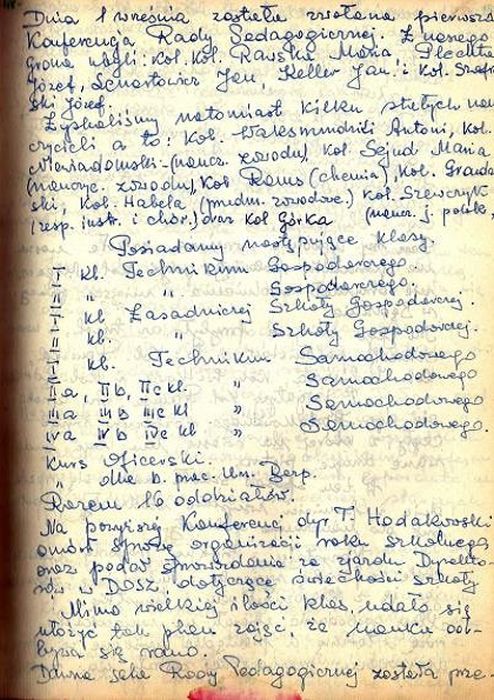 Dnia 1 września została zwołana pierwsza
Konferencja Rady Pedagogicznej. Z naszego
grona ubyli: kol. kol. Rawska Maria, Plechta
Józef, Schortowicz Jan, Keller Jan, i kol. Szafrań-
ski Józef.
Zyskaliśmy natomiast kilku stałych nau-
czycieli a to: kol. Waksmundzki Antoni, kol.
Niewiadomski - (naucz. zawodu), kol. Sejud Maria
(naucyc. zawodu), kol. Roms (chemia), kol. Grauda
ski, kol. Habela (przedm. zawodowe.) kol. Szewczyk
(zesp. instr. i chór.) oraz kol Górka (naucz. j. polsk.)
Posiadamy następujące klasy.
I kl. Technikum Gospodarczego.
II " " Gospodarczego.
I kl. Zasadniczej Szkoły Gospodarczej.
II kl. " Szkoły Gospodarczej.
I kl. Technikum Samochodowego
II a, II b, II c kl. " Samochodowego
III a III b III c kl " Samochodowego
IV a IV b IV c kl " Samochodowego
Kurs Oficerski.
" dla b. prac. Um. Bezp.
Razem 16 oddziałów.
Na powyższej Konferencji dyr T. Hodakowski
omówił sprawę organizacji roku szkolnego
oraz podał sprawozdanie ze zjazdu Dyrekto-
rów w DOSZ. dotyczące świeckości szkoły
Mimo wielkiej ilości klas, udało się
ułożyć tak plan zajęć, że nauka od-
bywa się rano.
Dawna sala Rady Pedagogicznej została prze-